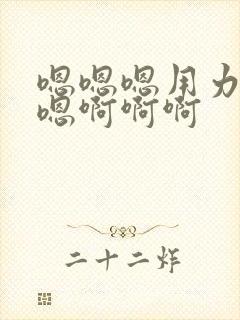 嗯嗯嗯用力
嗯啊啊啊
二十二炸